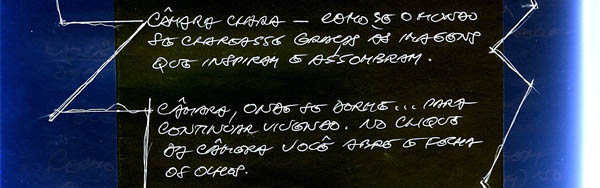 CÂMARA CLARA — COMO SE O MUNDO
SE CLAREASSE GRAÇAS ÀS IMAGENS
QUE INSPIRAM E ASSOMBRAM.
CÂMARA, ONDE SE DORME... PARA
CONTINUAR VIVENDO. NO CLIQUE
DA CÂMERA VOCÊ ABRE E FECHA
OS OLHOS.